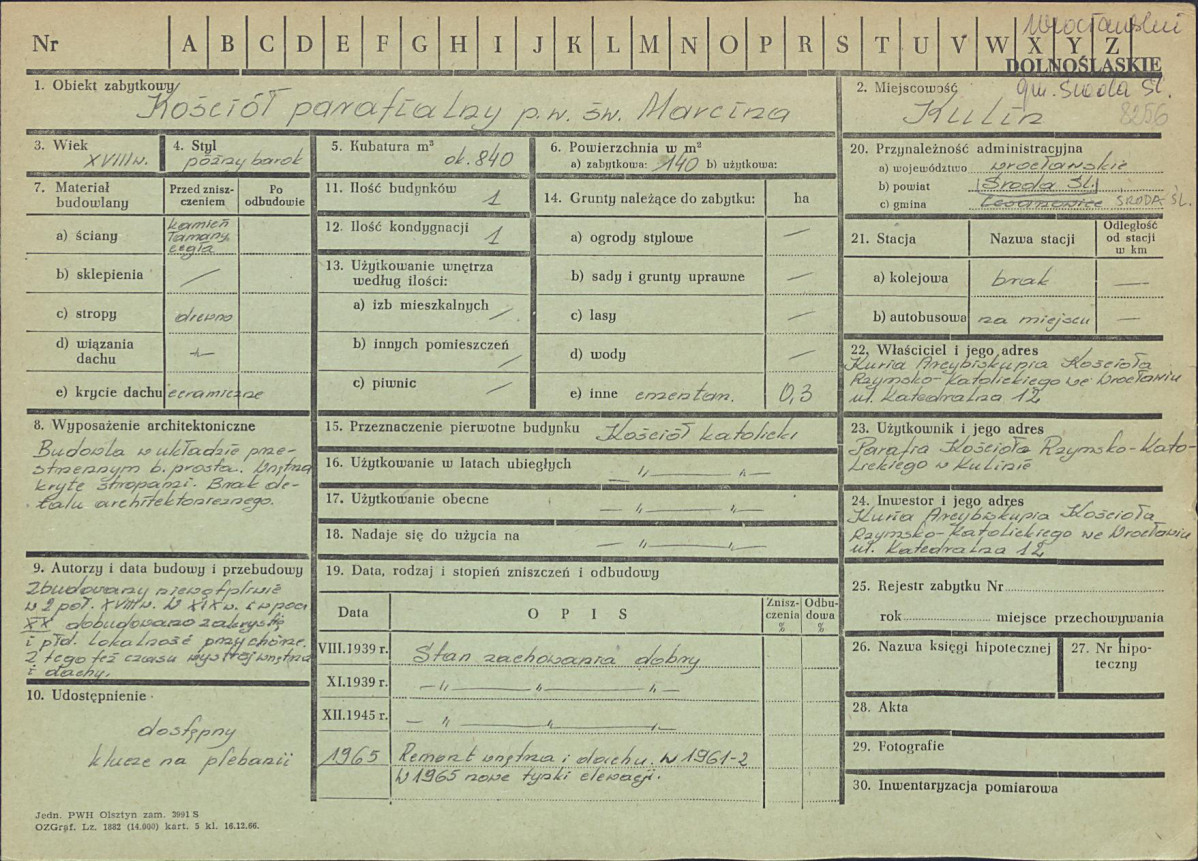 Nr A B C D E F G H I J K L M N O P R S T U V W X Y Z
wrocławskie
DOLNOŚLĄSKIE
1. Obiekt zabytkowy
Kościół parafialny p.w. św. Marcina
2. Miejscowość gm. Środa Śl.
Kulin 8256
3. Wiek
XVIII w.
4. Styl
późny barok
5. Kubatura m³
ok. 840
6. Powierzchnia w m²
a) zabytkowa: 140 b) użytkowa:
7. Materiał budowlany
Przed zniszczeniem
Po odbudowie
a) ściany
kamień
łamany,
cegła
b) sklepienia —
c) stropy drewno
d) wiązania dachu -"-
e) krycie dachu ceramiczne
11. Ilość budynków
1
12. Ilość kondygnacji
1
13. Użytkowanie wnętrza
według ilości:
a) izb mieszkalnych —
b) innych pomieszczeń —
c) piwnic —
14. Grunty należące do zabytku: ha
a) ogrody stylowe —
b) sady i grunty uprawne —
c) lasy —
d) wody —
e) inne cmentarz. 0,3
20. Przynależność administracyjna
a) województwo wrocławskie
b) powiat Środa Śl.
c) gmina ŚRODA ŚL.
21. Stacja
Nazwa stacji
Odległość
od stacji
w km
a) kolejowa brak —
b) autobusowa na miejscu —
22. Właściciel i jego adres
Kuria Arcybiskupia Kościoła
Rzymsko-Katolickiego we Wrocławiu
ul. Katedralna 12
23. Użytkownik i jego adres
Parafia Kościoła Rzymsko-Kato-
lickiego w Kulinie
24. Inwestor i jego adres
Kuria Arcybiskupia Kościoła
Rzymsko-Katolickiego we Wrocławiu
ul. Katedralna 12
8. Wyposażenie architektoniczne
Budowla w układzie prze-
strzennym b. prosta. Wnętrza
kryte stropami. Brak de-
talu architektonicznego.
15. Przeznaczenie pierwotne budynku Kościół katolicki
16. Użytkowanie w latach ubiegłych — " — " —
17. Użytkowanie obecne — " — " —
18. Nadaje się do użycia na — " — " —
9. Autorzy i data budowy i przebudowy
Zbudowany niewątpliwie
w 2 poł. XVIII w. W XIX w. i w pocz
XX dobudowano zakrystię
i płd. lokalność przy chórze.
Z tego też czasu wystrój wnętrza
i dachy.
10. Udostępnienie
dostępny
klucze na plebanii
19. Data, rodzaj i stopień zniszczeń i odbudowy
Data
O P I S
Zniszczenia %
Odbudowa %
VIII.1939 r. Stan zachowania dobry
XI.1939 r. — " — " — " —
XII.1945 r. — " — " — " —
1965 Remont wnętrza i dachu. w 1961-2
W 1965 nowe tynki elewacji.
25. Rejestr zabytku Nr
rok miejsce przechowywania
26. Nazwa księgi hipotecznej
27. Nr hipo-
teczny
28. Akta
29. Fotografie
30. Inwentaryzacja pomiarowa
Jedn. PWH Olsztyn zam. 3991 S
OZGraf. Lz. 1882 (14.000) kart. 5 kl. 16.12.66.